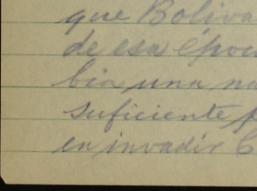 que Boliva
de esa époc
bia una na
suficiente p
en invadir C